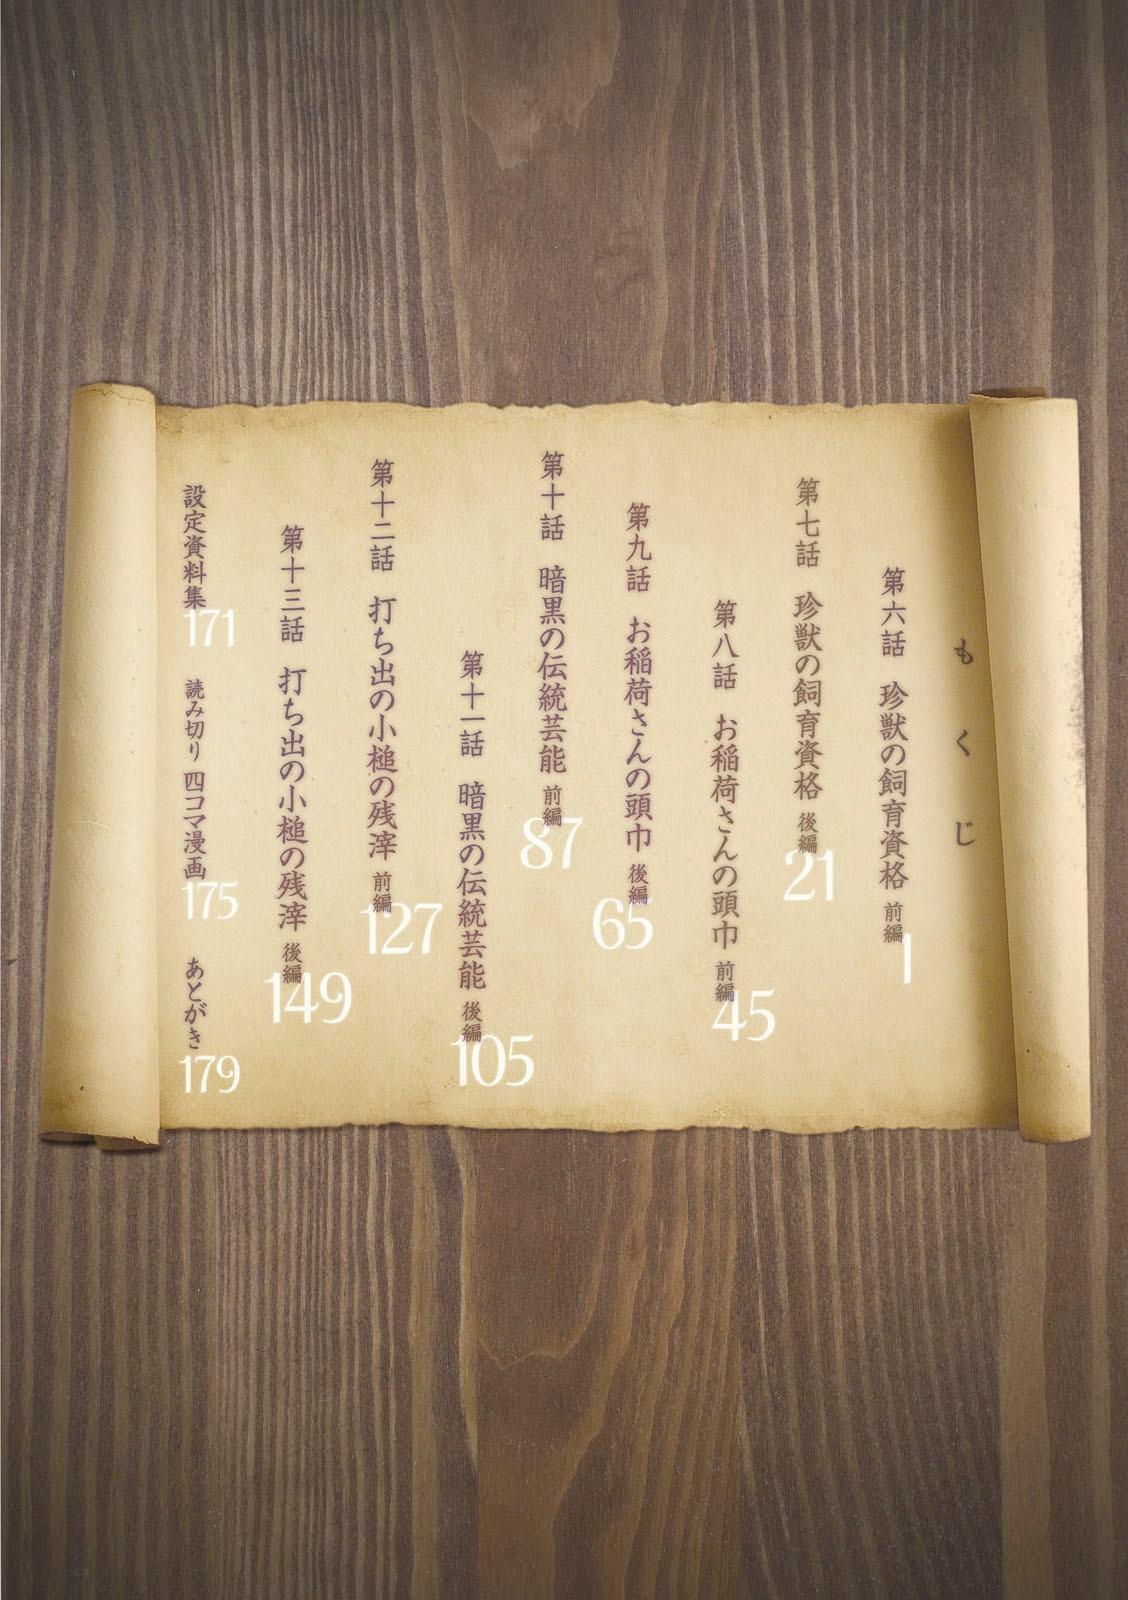 もくじ
第六話 珍獣の飼育資格 前編 1
第七話 珍獣の飼育資格 後編 21
第八話 お稲荷さんの頭巾 前編 45
第九話 お稲荷さんの頭巾 後編 65
第十話 暗黒の伝統芸能 前編 87
第十一話 暗黒の伝統芸能 後編 105
第十二話 打ち出の小槌の残滓 前編 127
第十三話 打ち出の小槌の残滓 後編 149
設定資料集 171 読み切り 四コマ漫画 175 あとがき 179